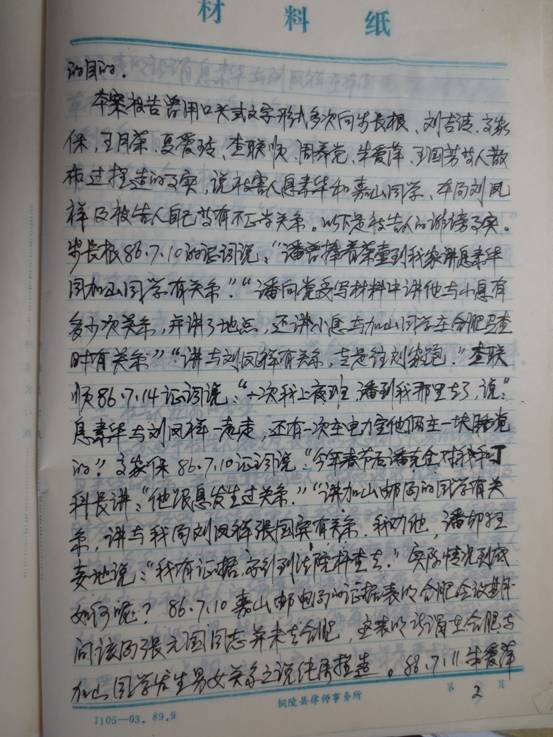 材料纸
的目的。
本案被告曾用口头或文字形式多次向步长根、刘吉洁、文家
保、王月荣、夏爱琼、查联顺、周养党、朱爱萍、王国芳等人散
布过捏造的事实，说被害人息素华和嘉山同学、本局刘凤
祥及被告人自己等有不正当关系。以下是被告人的诽谤事实。
步长根86.7.10的证词说、“潘曾捧着茶壶到我家讲息素华
同加山同学有关系”“潘向党委写材料中讲他与小息有
多少次关系，并讲了地点，还讲小息与加山同学在合肥
时有关系”“讲与刘凤祥有关系，老是往刘家跑。”查联
顺86.7.14证词说、“一次我上夜班潘到我那里去了，说“
息素华与刘凤祥一起走，还有一次在电力室他俩在一块睡觉
的”。文家保86.7.10证词说“今年春节后潘完全对我和丁
科长讲、“他跟息发生过关系。”“讲加山邮局的同学有关
系，讲与我局刘凤祥张国实有关系。我劝他，潘却狂
妄地说、“我有证据，否则到法院检查去。”实际情况到底
如何呢？86.7.10嘉山邮电局的证据表明合肥会议期
间该局张元国同志并未去合肥，这表明所谓在合肥与
加山同学发生男女关系之说纯属捏造。86.7.11朱爱萍
第2页
1105—03.89.9
铜陵县律师事务所